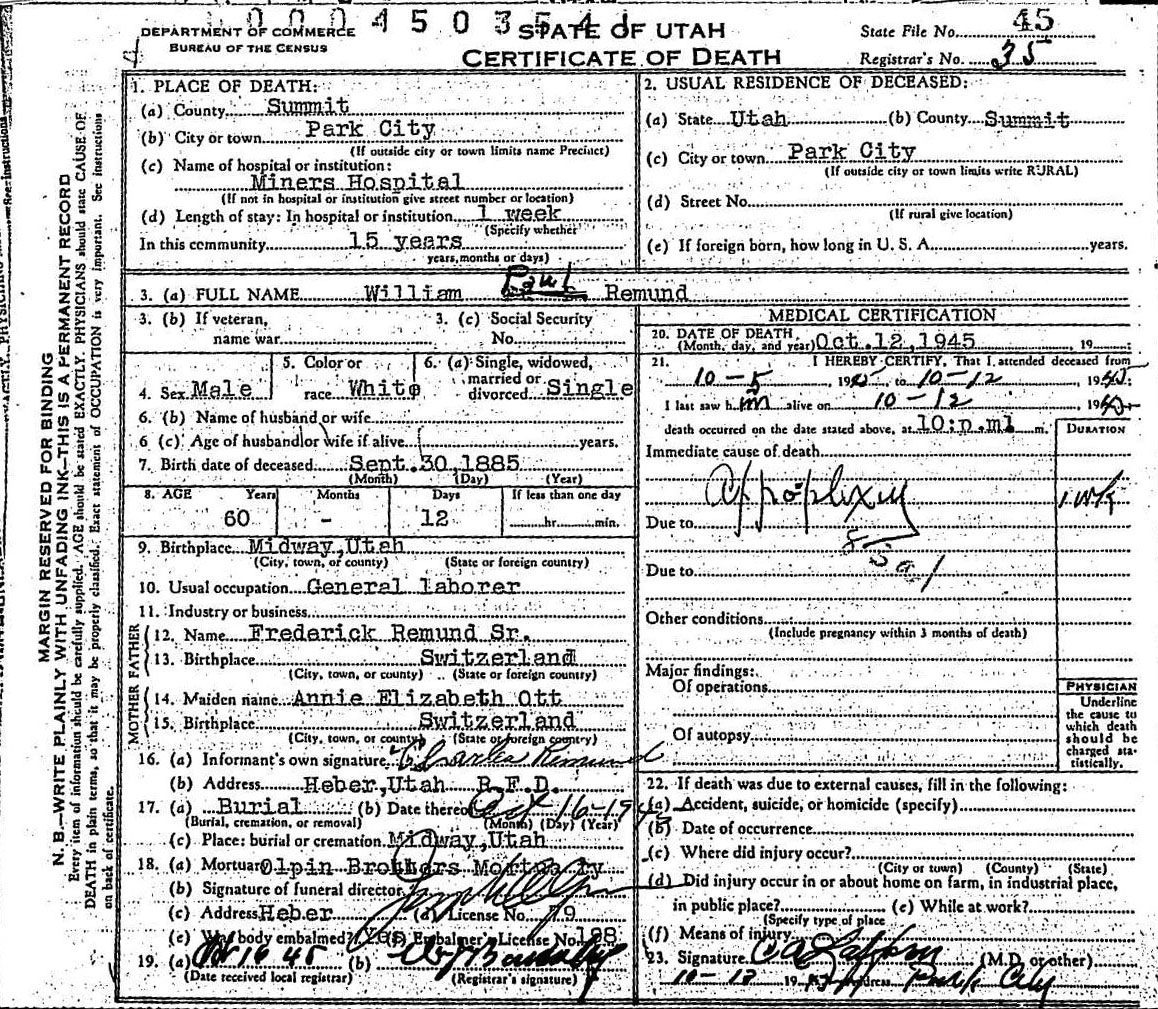 DEPARTMENT OF COMMERCE
BUREAU OF THE CENSUS
STATE OF UTAH
CERTIFICATE OF DEATH
State File No. 45
Registrar's No. 35
MARGIN RESERVED FOR BINDING
N. B.—WRITE PLAINLY WITH UNFADING INK—THIS IS A PERMANENT RECORD
Every item of information should be carefully supplied. AGE should be stated EXACTLY. PHYSICIANS should state CAUSE OF
DEATH in plain terms, so that it may be properly classified. Exact statement of OCCUPATION is very important. See instructions
on back of certificate.
1. PLACE OF DEATH:
(a) County Summit
(b) City or town Park City
(If outside city or town limits name Precinct)
(c) Name of hospital or institution:
Miners Hospital
(If not in hospital or institution give street number or location)
(d) Length of stay: In hospital or institution 1 week
(Specify whether
In this community 15 years
years, months or days)
2. USUAL RESIDENCE OF DECEASED:
(a) State Utah (b) County Summit
(c) City or town Park City
(If outside city or town limits write RURAL)
(d) Street No.
(If rural give location)
(e) If foreign born, how long in U. S. A. years.
3. (a) FULL NAME William Paul Remund
3. (b) If veteran, name war
3. (c) Social Security No.
4. Sex Male
5. Color or race White
6. (a) Single, widowed, married or divorced Single
6. (b) Name of husband or wife
6 (c) Age of husband or wife if alive years.
7. Birth date of deceased Sept. 30, 1885
(Month) (Day) (Year)
8. AGE Years Months Days If less than one day
60 - 12 hr. min.
9. Birthplace Midway, Utah
(City, town, or county) (State or foreign country)
10. Usual occupation General laborer
11. Industry or business
FATHER
12. Name Frederick Remund Sr.
13. Birthplace Switzerland
(City, town, or county) (State or foreign country)
MOTHER
14. Maiden name Annie Elizabeth Ott
15. Birthplace Switzerland
(City, town, or county) (State or foreign country)
16. (a) Informant's own signature Charles Remund
(b) Address Heber, Utah R.F.D.
17. (a) Burial (b) Date thereof Oct-16-1945
(Burial, cremation, or removal) (Month) (Day) (Year)
(c) Place: burial or cremation Midway, Utah
18. (a) Mortuary Olpin Brothers Mortuary
(b) Signature of funeral director
(c) Address Heber (d) License No. 79
(e) Was body embalmed? Yes (f) Embalmer's License No. 188
19. (a) Oct 16 45 (b)
(Date received local registrar) (Registrar's signature)
MEDICAL CERTIFICATION
20. DATE OF DEATH
(Month, day, and year) Oct. 12, 1945 19
21. I HEREBY CERTIFY, That I attended deceased from
10-5, 1945, to 10-12, 1945
I last saw him alive on 10-12 1945
death occurred on the date stated above, at 10:p.m. m.
DURATION
Immediate cause of death
Appoplexy 1 wk
Due to
Due to
Other conditions
(Include pregnancy within 3 months of death)
Major findings:
Of operations
Of autopsy
PHYSICIAN
Underline
the cause to
which death
should be
charged sta-
tistically.
22. If death was due to external causes, fill in the following:
(a) Accident, suicide, or homicide (specify)
(b) Date of occurrence
(c) Where did injury occur?
(City or town) (County) (State)
(d) Did injury occur in or about home on farm, in industrial place,
in public place? (e) While at work?
(Specify type of place
(f) Means of injury
23. Signature (M.D. or other)
Address Park City